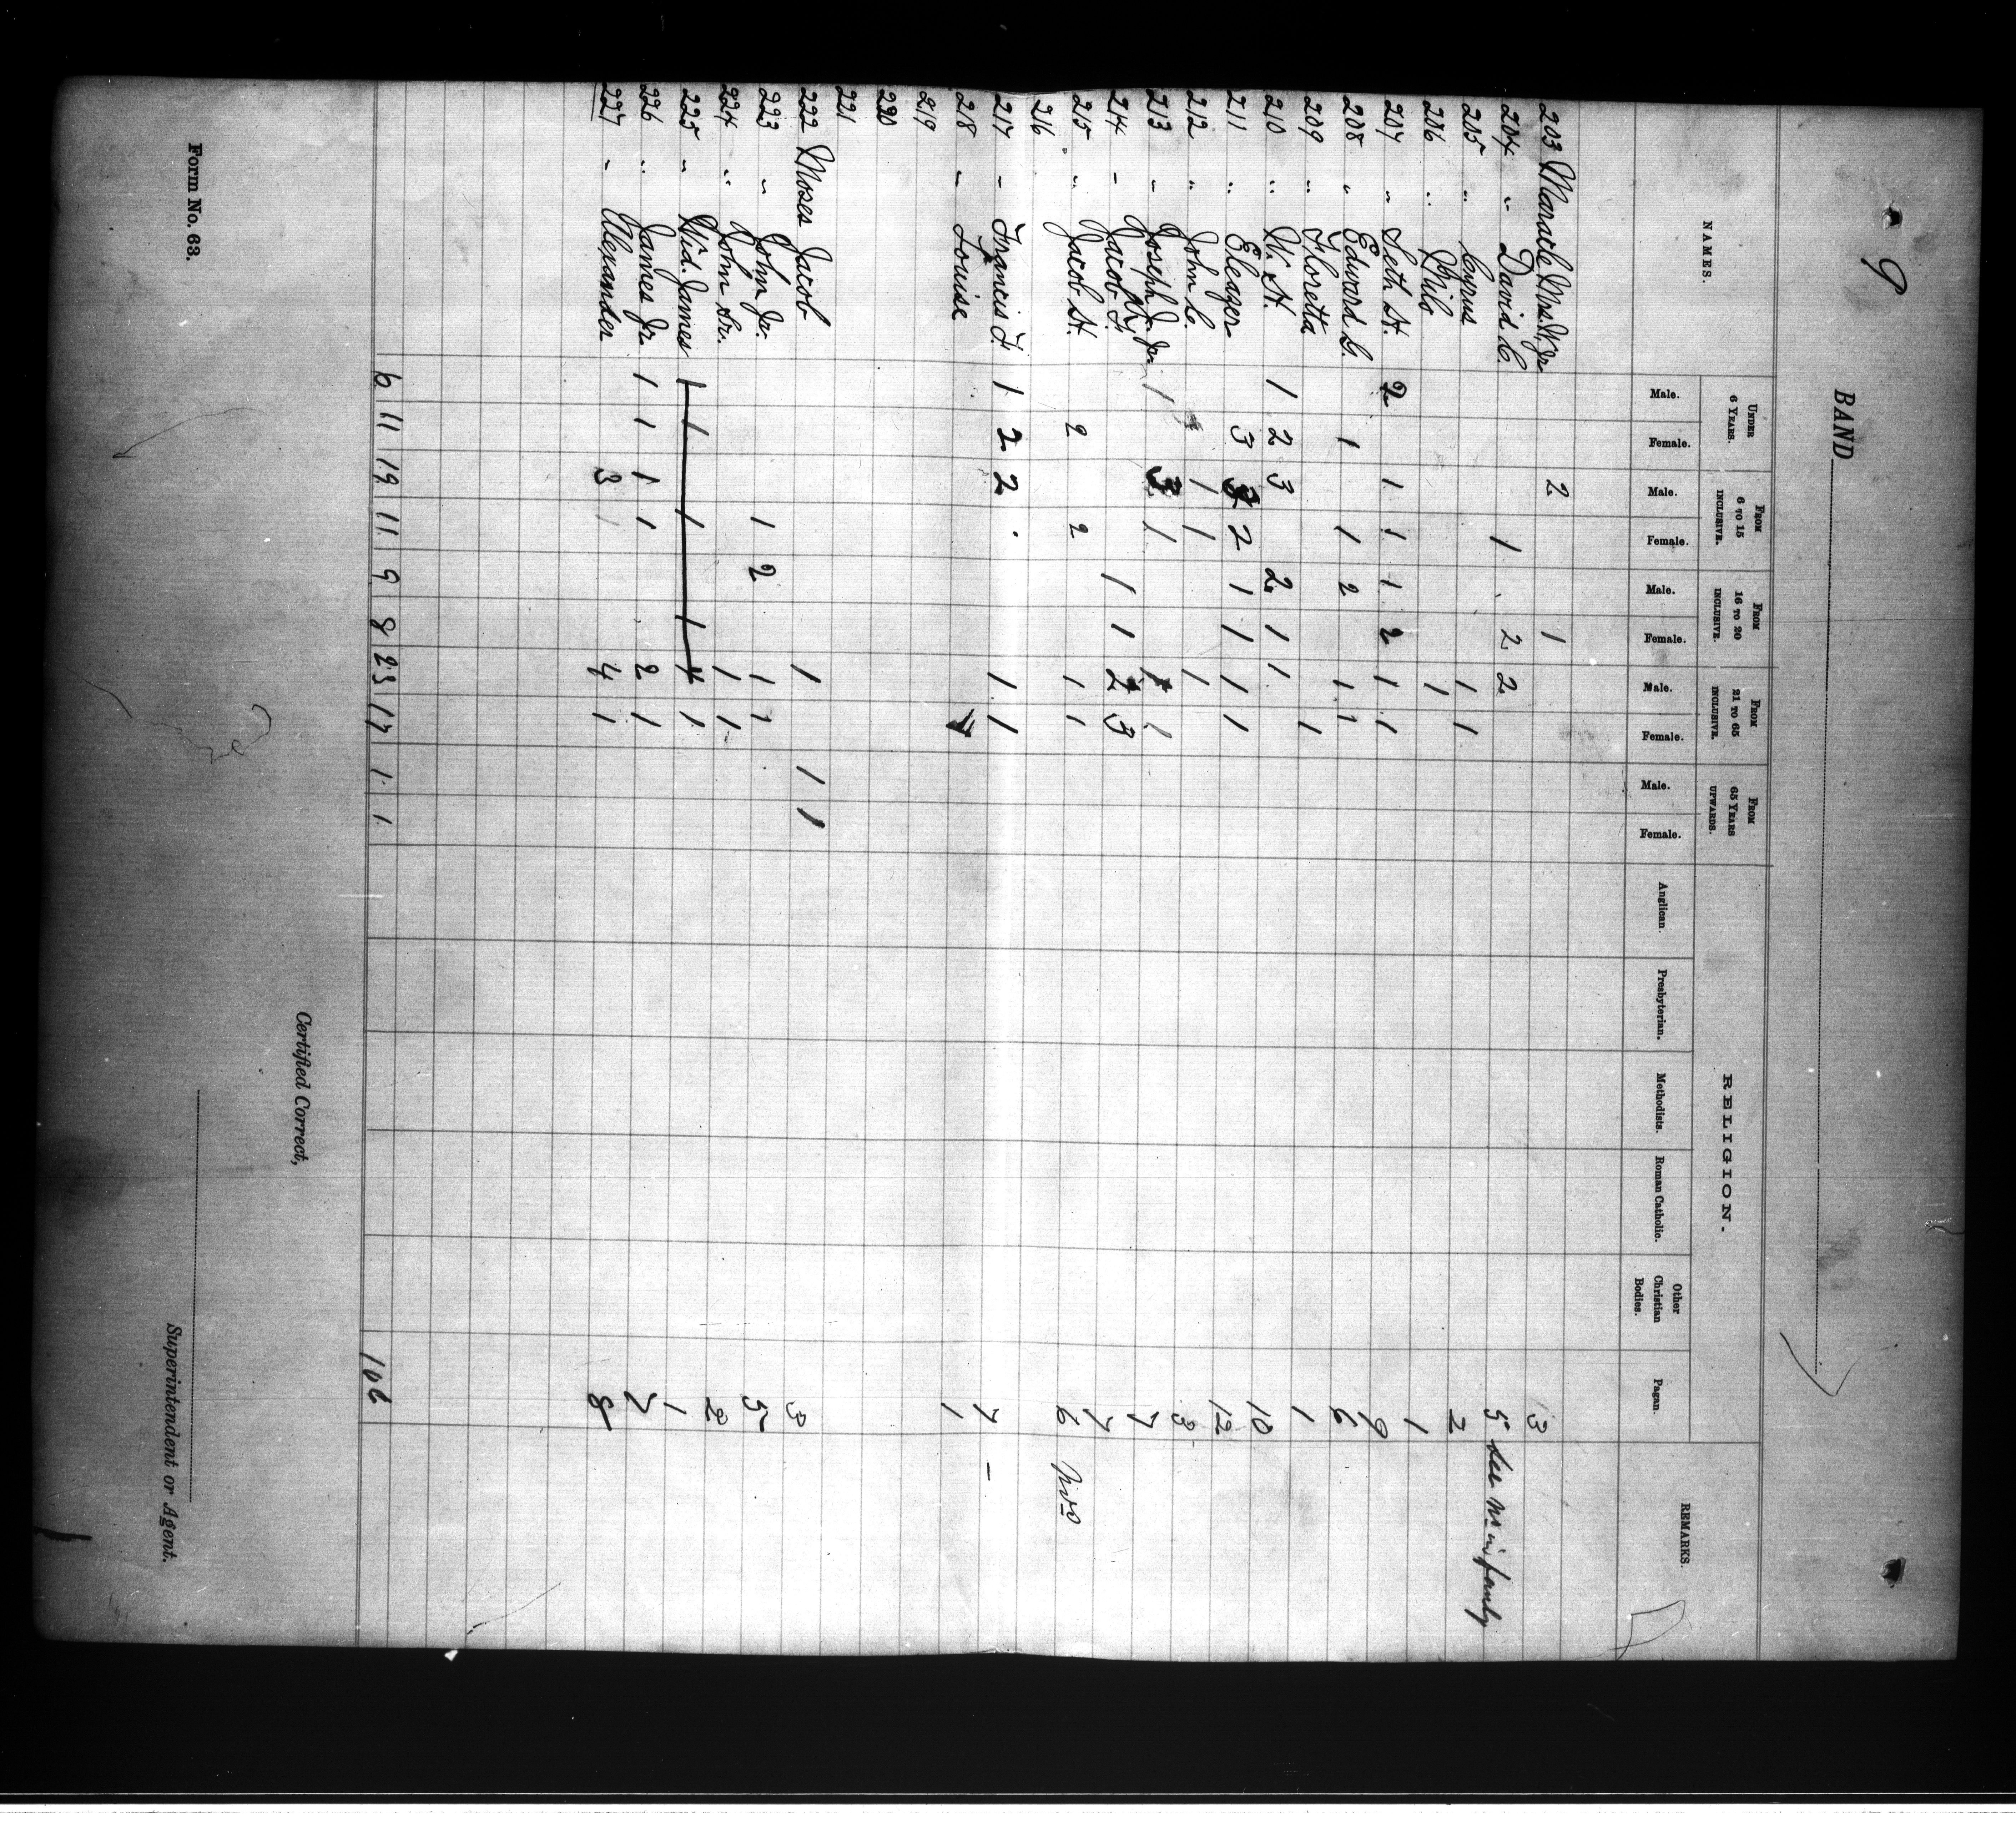 9
BAND
NAMES.
UNDER 6 YEARS.
FROM 6 TO 15 INCLUSIVE.
FROM 16 TO 20 INCLUSIVE.
FROM 21 TO 65 INCLUSIVE.
FROM 65 YEARS UPWARDS.
RELIGION.
REMARKS.
Male. Female. Male. Female. Male. Female. Male. Female. Male. Female. Anglican. Presbyterian. Methodists. Roman Catholic. Other Christian Bodies. Pagan.
203 Maracle Mrs. W. Jr 2 1 3
204 " David C. 1 2 2 5 see no in family
205 " Cyrus 1 1 2
206 " Philo 1 1
207 " Seth H. 2 1 1 1 2 1 1 9
208 " Edward G. 1 1 2 1 1 6
209 " Floretta 1 1
210 " W. H. 1 2 3 2 1 1 10
211 " Eleazer 3 3 2 1 1 1 1 12
212 " John C. 1 1 1 3
213 " Joseph J. Jr. 1 3 1 1 1 7
214 " Jacob J. 1 1 2 3 7
215 " Jacob H. 2 2 1 1 6
216
217 " Francis J. 1 2 2 1 1 7 –
218 " Louise 1 1
219
220
221
222 Moses Jacob 1 1 1 3
223 " John Jr. 1 2 1 1 5
224 " John Sr. 1 1 2
225 " Wid. James 1 1 1 1 1 1 1
226 " James Jr. 1 1 1 1 2 1 7
227 " Alexander 3 1 4 1 8
6 11 19 11 9 8 23 17 1 1 106
Certified Correct,
Superintendent or Agent.
Form No. 63.